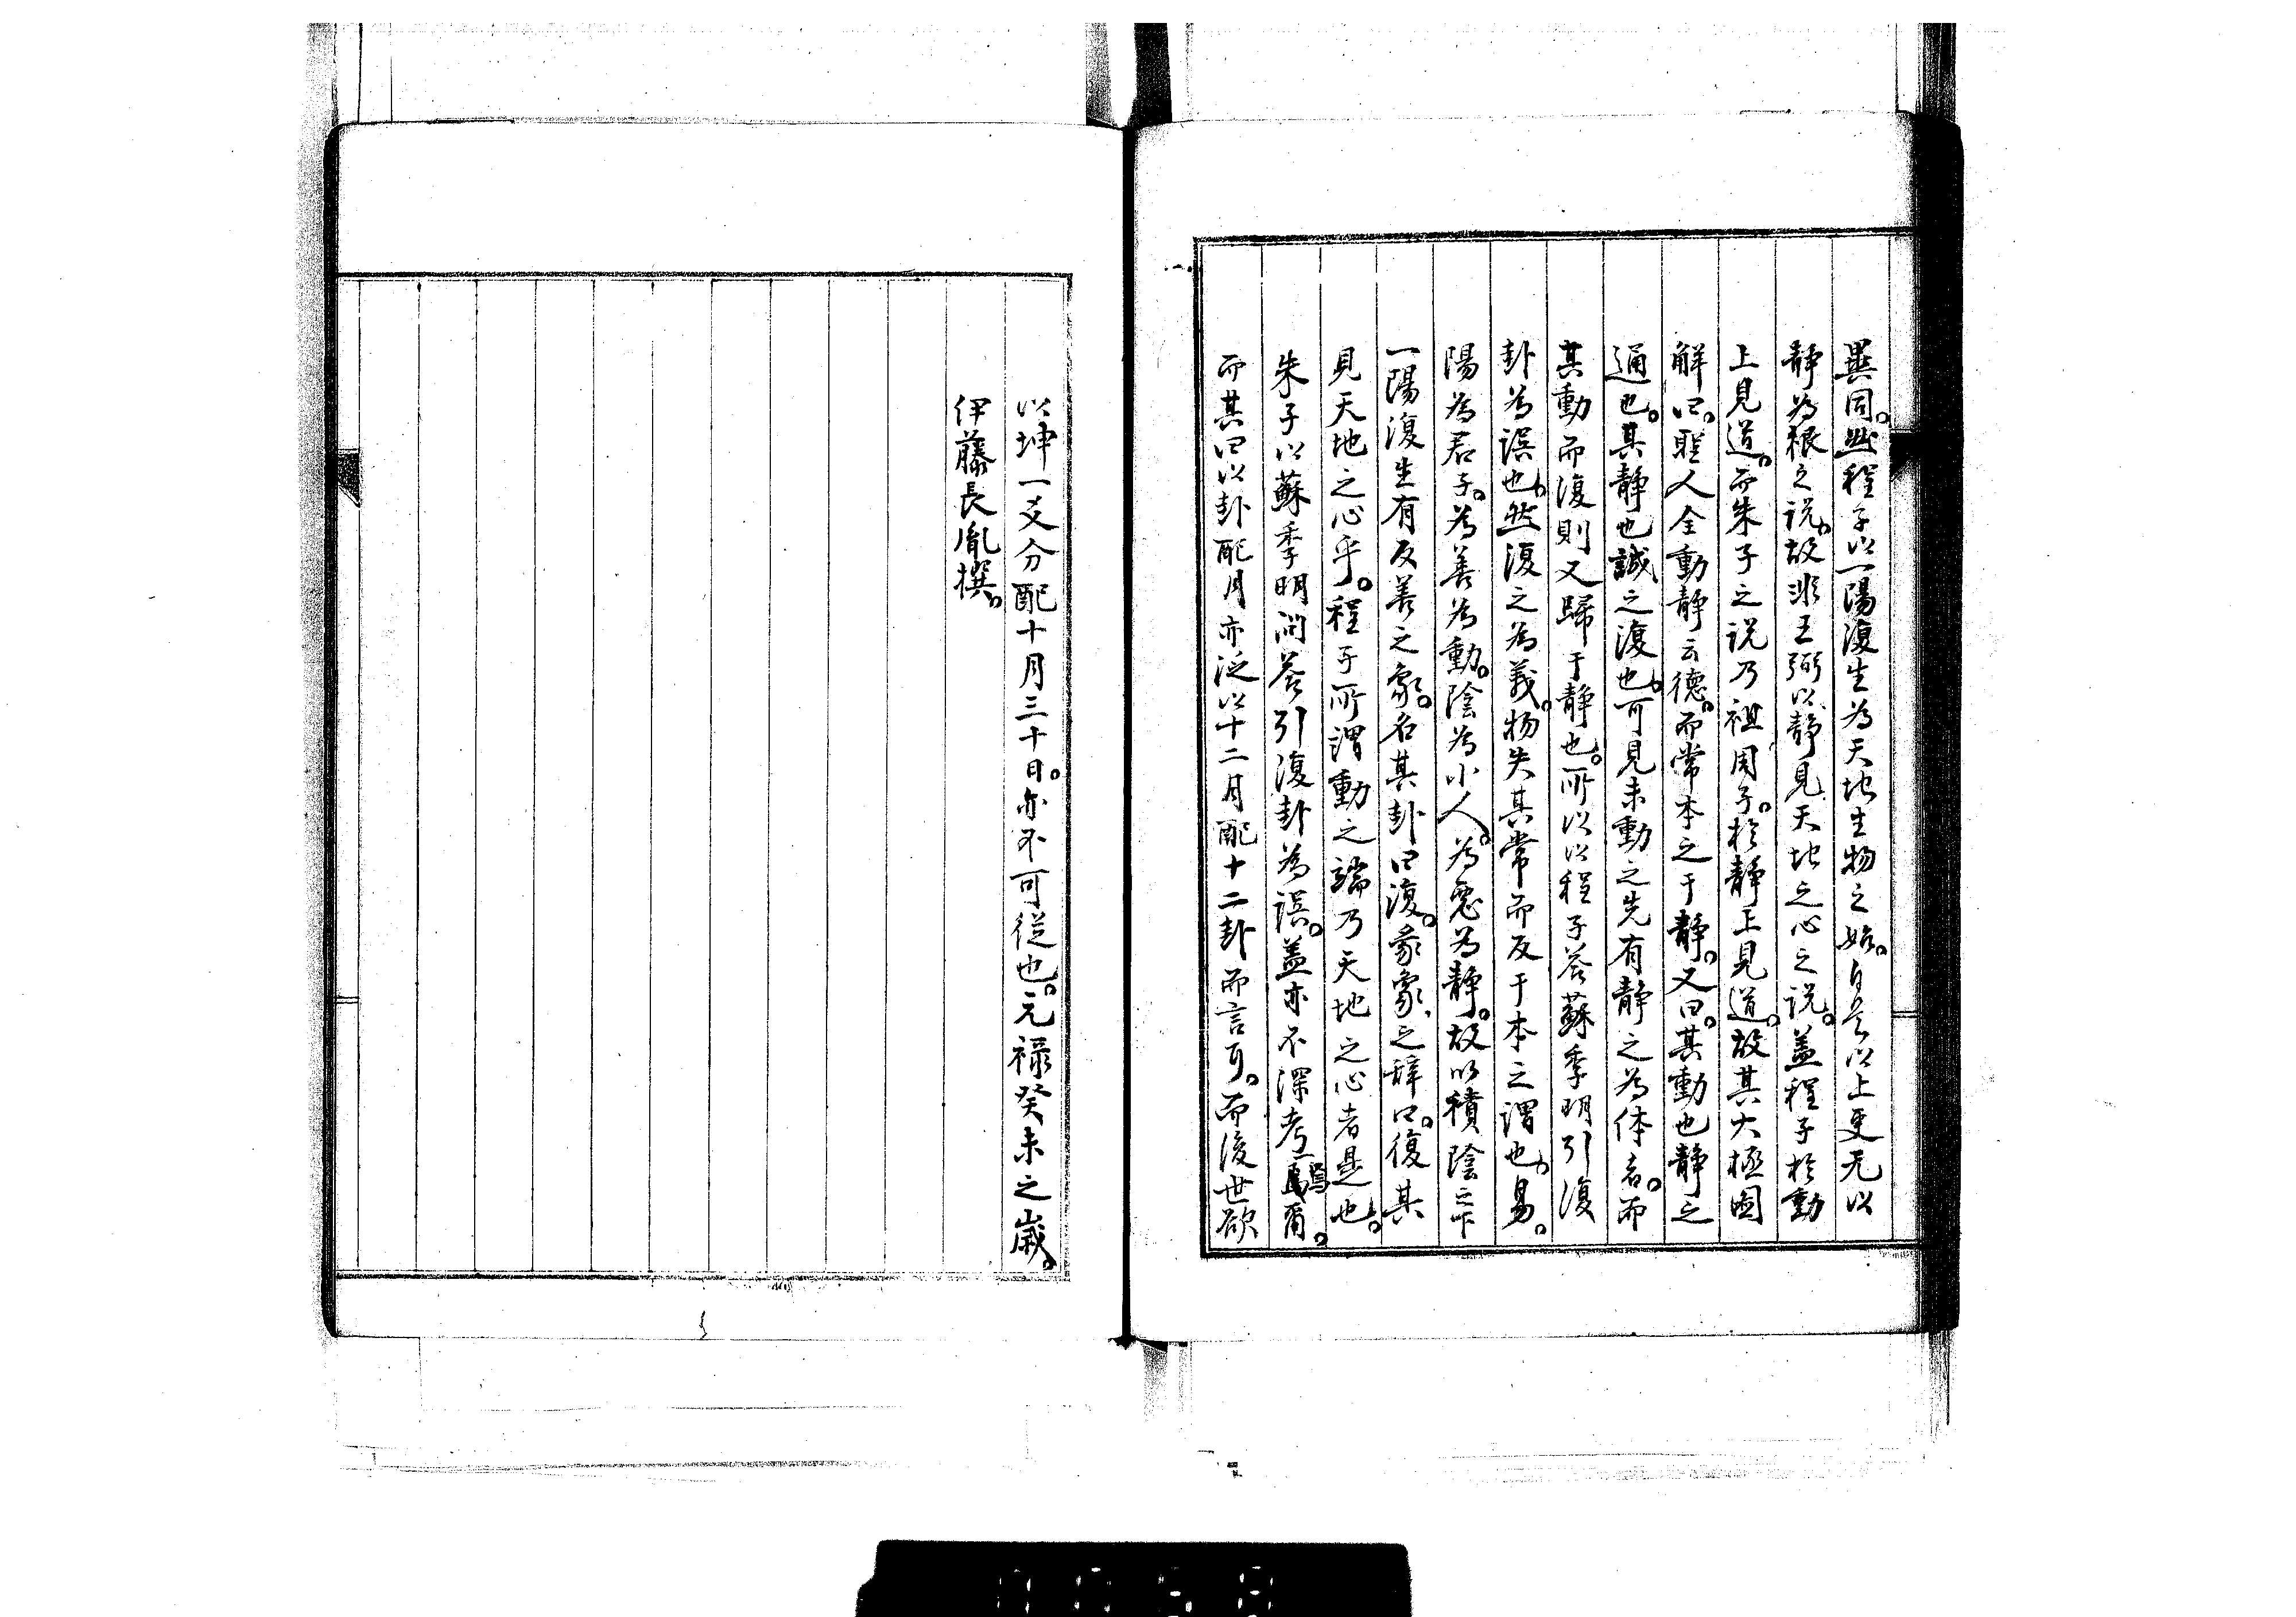 異同。然程子以一陽復生為天地生物之始。自是以上更无以
静為根之説。故非王弼以静見天地之心之説。盖程子於動
上見道。而朱子之説乃祖周子。於静上見道。故其大極图
解曰。聖人全動静云德。而常本之于静。又曰。其動也静之
通也。其静也誠之復也。可見未動之先有静之為体者。而
其動而復則又歸于静也。所以以程子答蘇季明引復
卦為誤也。然復之為義。物失其常而反于本之謂也。易。
陽為君子。為善為動。陰為小人。為惡為静。故以積陰之下
一陽復生有反善之象。名其卦曰復。彖象之辞曰。復其
見天地之心乎。程子所謂動之端乃天地之心者是也。
朱子以蘇季明問答引復卦為誤。盖亦不深考焉爾。
而其曰以卦配月亦泛以十二月配十二卦而言耳。而後世欲
以坤一爻分配十月三十日。亦不可従也。元禄癸未之歳。
伊藤長胤撰。